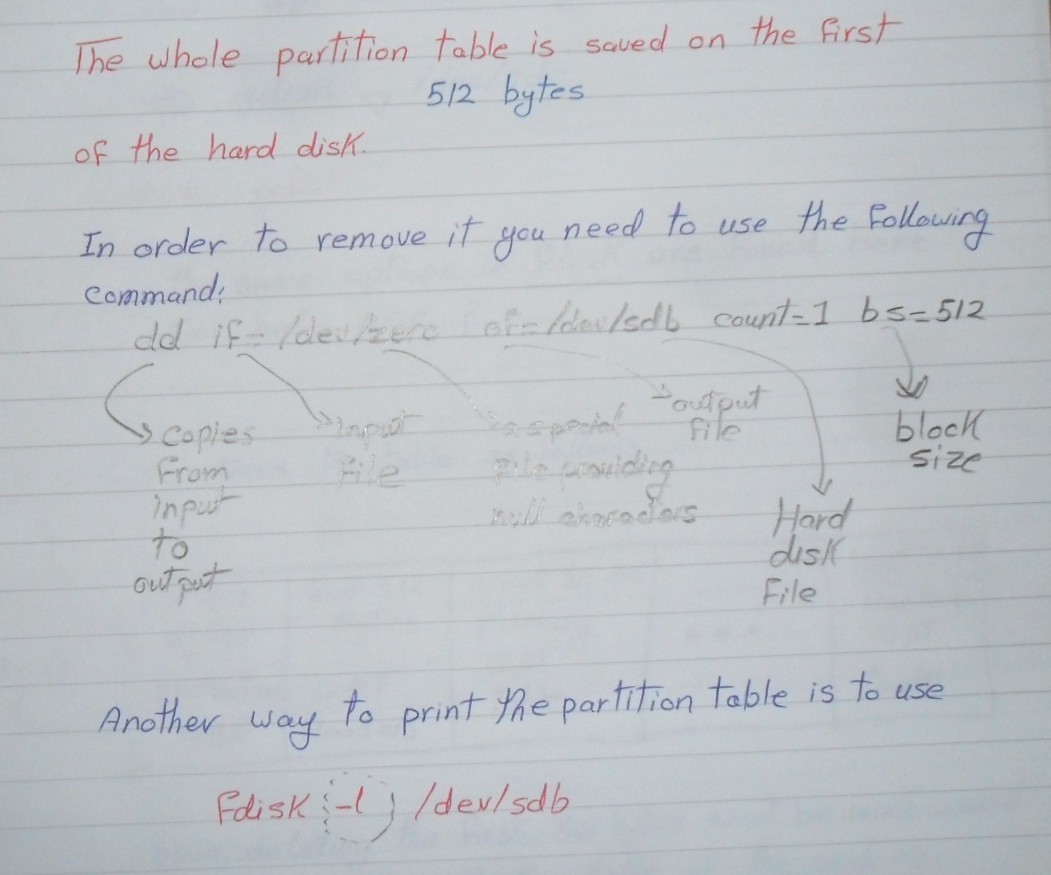 The whole partition table is saved on the first
512 bytes
of the hard disk.
In order to remove it you need to use the following
command:
dd if=/dev/zero of=/dev/sdb count=1 bs=512
copies
from
input
to
output
input
file
a special
file providing
null characters
output
file
Hard
disk
file
block
size
Another way to print the partition table is to use
fdisk -l /dev/sdb